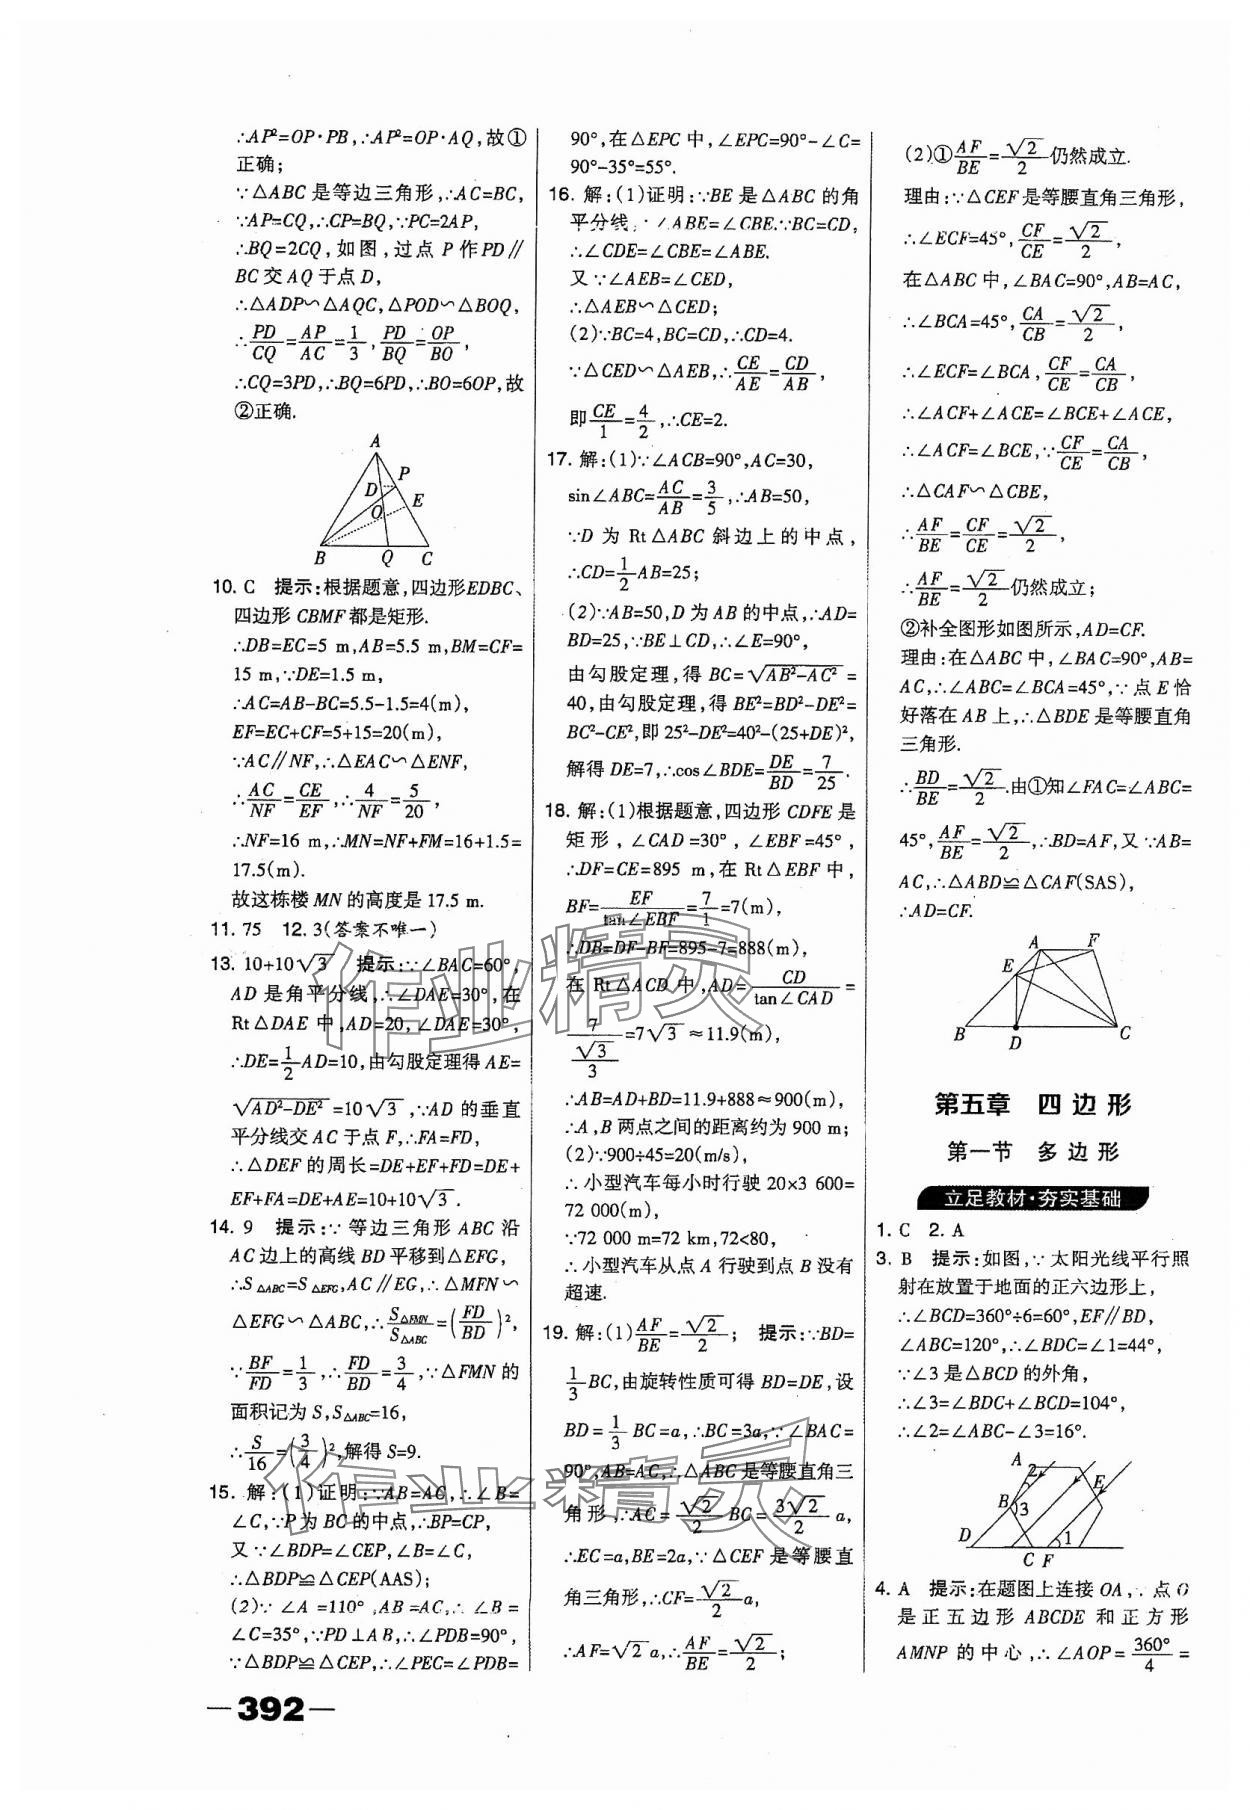 ∴AP²=OP·PB,∴AP²=OP·AQ,故①
正确;
∵△ABC是等边三角形,∴AC=BC,
∵AP=CQ,∴CP=BQ,∵PC=2AP,
∴BQ=2CQ,如图,过点P作PD∥
BC交AQ于点D,
∴△ADP∽△AQC,△POD∽△BOQ,
∴PD/CQ=AP/AC=1/3,PD/BQ=OP/BO,
∴CQ=3PD,∴BQ=6PD,∴BO=6OP,故
②正确.
A
P
D
E
O
B Q C
10. C 提示:根据题意,四边形EDBC、
四边形CBMF都是矩形.
∴DB=EC=5 m,AB=5.5 m,BM=CF=
15 m,∵DE=1.5 m,
∴AC=AB-BC=5.5-1.5=4(m),
EF=EC+CF=5+15=20(m),
∵AC∥NF,∴△EAC∽△ENF,
∴AC/NF=CE/EF,∴4/NF=5/20,
∴NF=16 m,∴MN=NF+FM=16+1.5=
17.5(m).
故这栋楼MN的高度是17.5 m.
11. 75 12. 3(答案不唯一)
13. 10+10√3 提示:∵∠BAC=60°,
AD是角平分线,∴∠DAE=30°,在
Rt△DAE中,AD=20,∠DAE=30°,
∴DE=1/2AD=10,由勾股定理得AE=
√(AD²-DE²)=10√3,∵AD的垂直
平分线交AC于点F,∴FA=FD,
∴△DEF的周长=DE+EF+FD=DE+
EF+FA=DE+AE=10+10√3.
14. 9 提示:∵等边三角形ABC沿
AC边上的高线BD平移到△EFG,
∴S△ABC=S△EFG,AC∥EG,∴△MFN∽
△EFG∽△ABC,∴S△FMN/S△ABC=(FD/BD)²,
∵BF/FD=1/3,∴FD/BD=3/4,∵△FMN的
面积记为S,S△ABC=16,
∴S/16=(3/4)²,解得S=9.
15. 解:(1)证明:∵AB=AC,∴∠B=
∠C,∵P为BC的中点,∴BP=CP,
又∵∠BDP=∠CEP,∠B=∠C,
∴△BDP≌△CEP(AAS);
(2)∵∠A=110°,AB=AC,∴∠B=
∠C=35°,∵PD⊥AB,∴∠PDB=90°,
∵△BDP≌△CEP,∴∠PEC=∠PDB=
90°,在△EPC中,∠EPC=90°-∠C=
90°-35°=55°.
16. 解:(1)证明:∵BE是△ABC的角
平分线,∴∠ABE=∠CBE.∵BC=CD,
∴∠CDE=∠CBE=∠ABE.
又∵∠AEB=∠CED,
∴△AEB∽△CED;
(2)∵BC=4,BC=CD,∴CD=4.
∵△CED∽△AEB,∴CE/AE=CD/AB,
即CE/1=4/2,∴CE=2.
17. 解:(1)∵∠ACB=90°,AC=30,
sin∠ABC=AC/AB=3/5,∴AB=50,
∵D为Rt△ABC斜边上的中点,
∴CD=1/2AB=25;
(2)∵AB=50,D为AB的中点,∴AD=
BD=25,∵BE⊥CD,∴∠E=90°,
由勾股定理,得BC=√(AB²-AC²)=
40,由勾股定理,得BE²=BD²-DE²=
BC²-CE²,即25²-DE²=40²-(25+DE)²,
解得DE=7,∴cos∠BDE=DE/BD=7/25.
18. 解:(1)根据题意,四边形CDFE是
矩形,∠CAD=30°,∠EBF=45°,
∴DF=CE=895 m,在Rt△EBF中,
BF=EF/tan∠EBF=7/1=7(m),
∴DB=DF-BF=895-7=888(m),
在Rt△ACD中,AD=CD/tan∠CAD=
7/(√3/3)=7√3≈11.9(m),
∴AB=AD+BD=11.9+888≈900(m),
∴A,B两点之间的距离约为900 m;
(2)∵900÷45=20(m/s),
∴小型汽车每小时行驶20×3 600=
72 000(m),
∵72 000 m=72 km,72<80,
∴小型汽车从点A行驶到点B没有
超速.
19. 解:(1)AF/BE=√2/2; 提示:∵BD=
1/3BC,由旋转性质可得BD=DE,设
BD=1/3BC=a,∴BC=3a,∵∠BAC=
90°,AB=AC,∴△ABC是等腰直角三
角形,∴AC=√2/2BC=3√2/2a,
∴EC=a,BE=2a,∵△CEF是等腰直
角三角形,∴CF=√2/2a,
∴AF=√2a,∴AF/BE=√2/2;
(2)①AF/BE=√2/2仍然成立.
理由:∵△CEF是等腰直角三角形,
∴∠ECF=45°,CF/CE=√2/2,
在△ABC中,∠BAC=90°,AB=AC,
∴∠BCA=45°,CA/CB=√2/2,
∴∠ECF=∠BCA,CF/CE=CA/CB,
∴∠ACF+∠ACE=∠BCE+∠ACE,
∴∠ACF=∠BCE,∵CF/CE=CA/CB,
∴△CAF∽△CBE,
∴AF/BE=CF/CE=√2/2,
∴AF/BE=√2/2仍然成立;
②补全图形如图所示,AD=CF.
理由:在△ABC中,∠BAC=90°,AB=
AC,∴∠ABC=∠BCA=45°,∵点E恰
好落在AB上,∴△BDE是等腰直角
三角形.
∴BD/BE=√2/2.由①知∠FAC=∠ABC=
45°,AF/BE=√2/2,∴BD=AF,又∵AB=
AC,∴△ABD≌△CAF(SAS),
∴AD=CF.
A F
E
B D C
第五章 四边形
第一节 多边形
立足教材·夯实基础
1. C 2. A
3. B 提示:如图,∵太阳光线平行照
射在放置于地面的正六边形上,
∴∠BCD=360°÷6=60°,EF∥BD,
∠ABC=120°,∴∠BDC=∠1=44°,
∵∠3是△BCD的外角,
∴∠3=∠BDC+∠BCD=104°,
∴∠2=∠ABC-∠3=16°.
A 2 E
B 3
D 1
C F
4. A 提示:在题图上连接OA,∵点O
是正五边形ABCDE和正方形
AMNP的中心,∴∠AOP=360°/4=
—392—
作业精灵
作业精灵